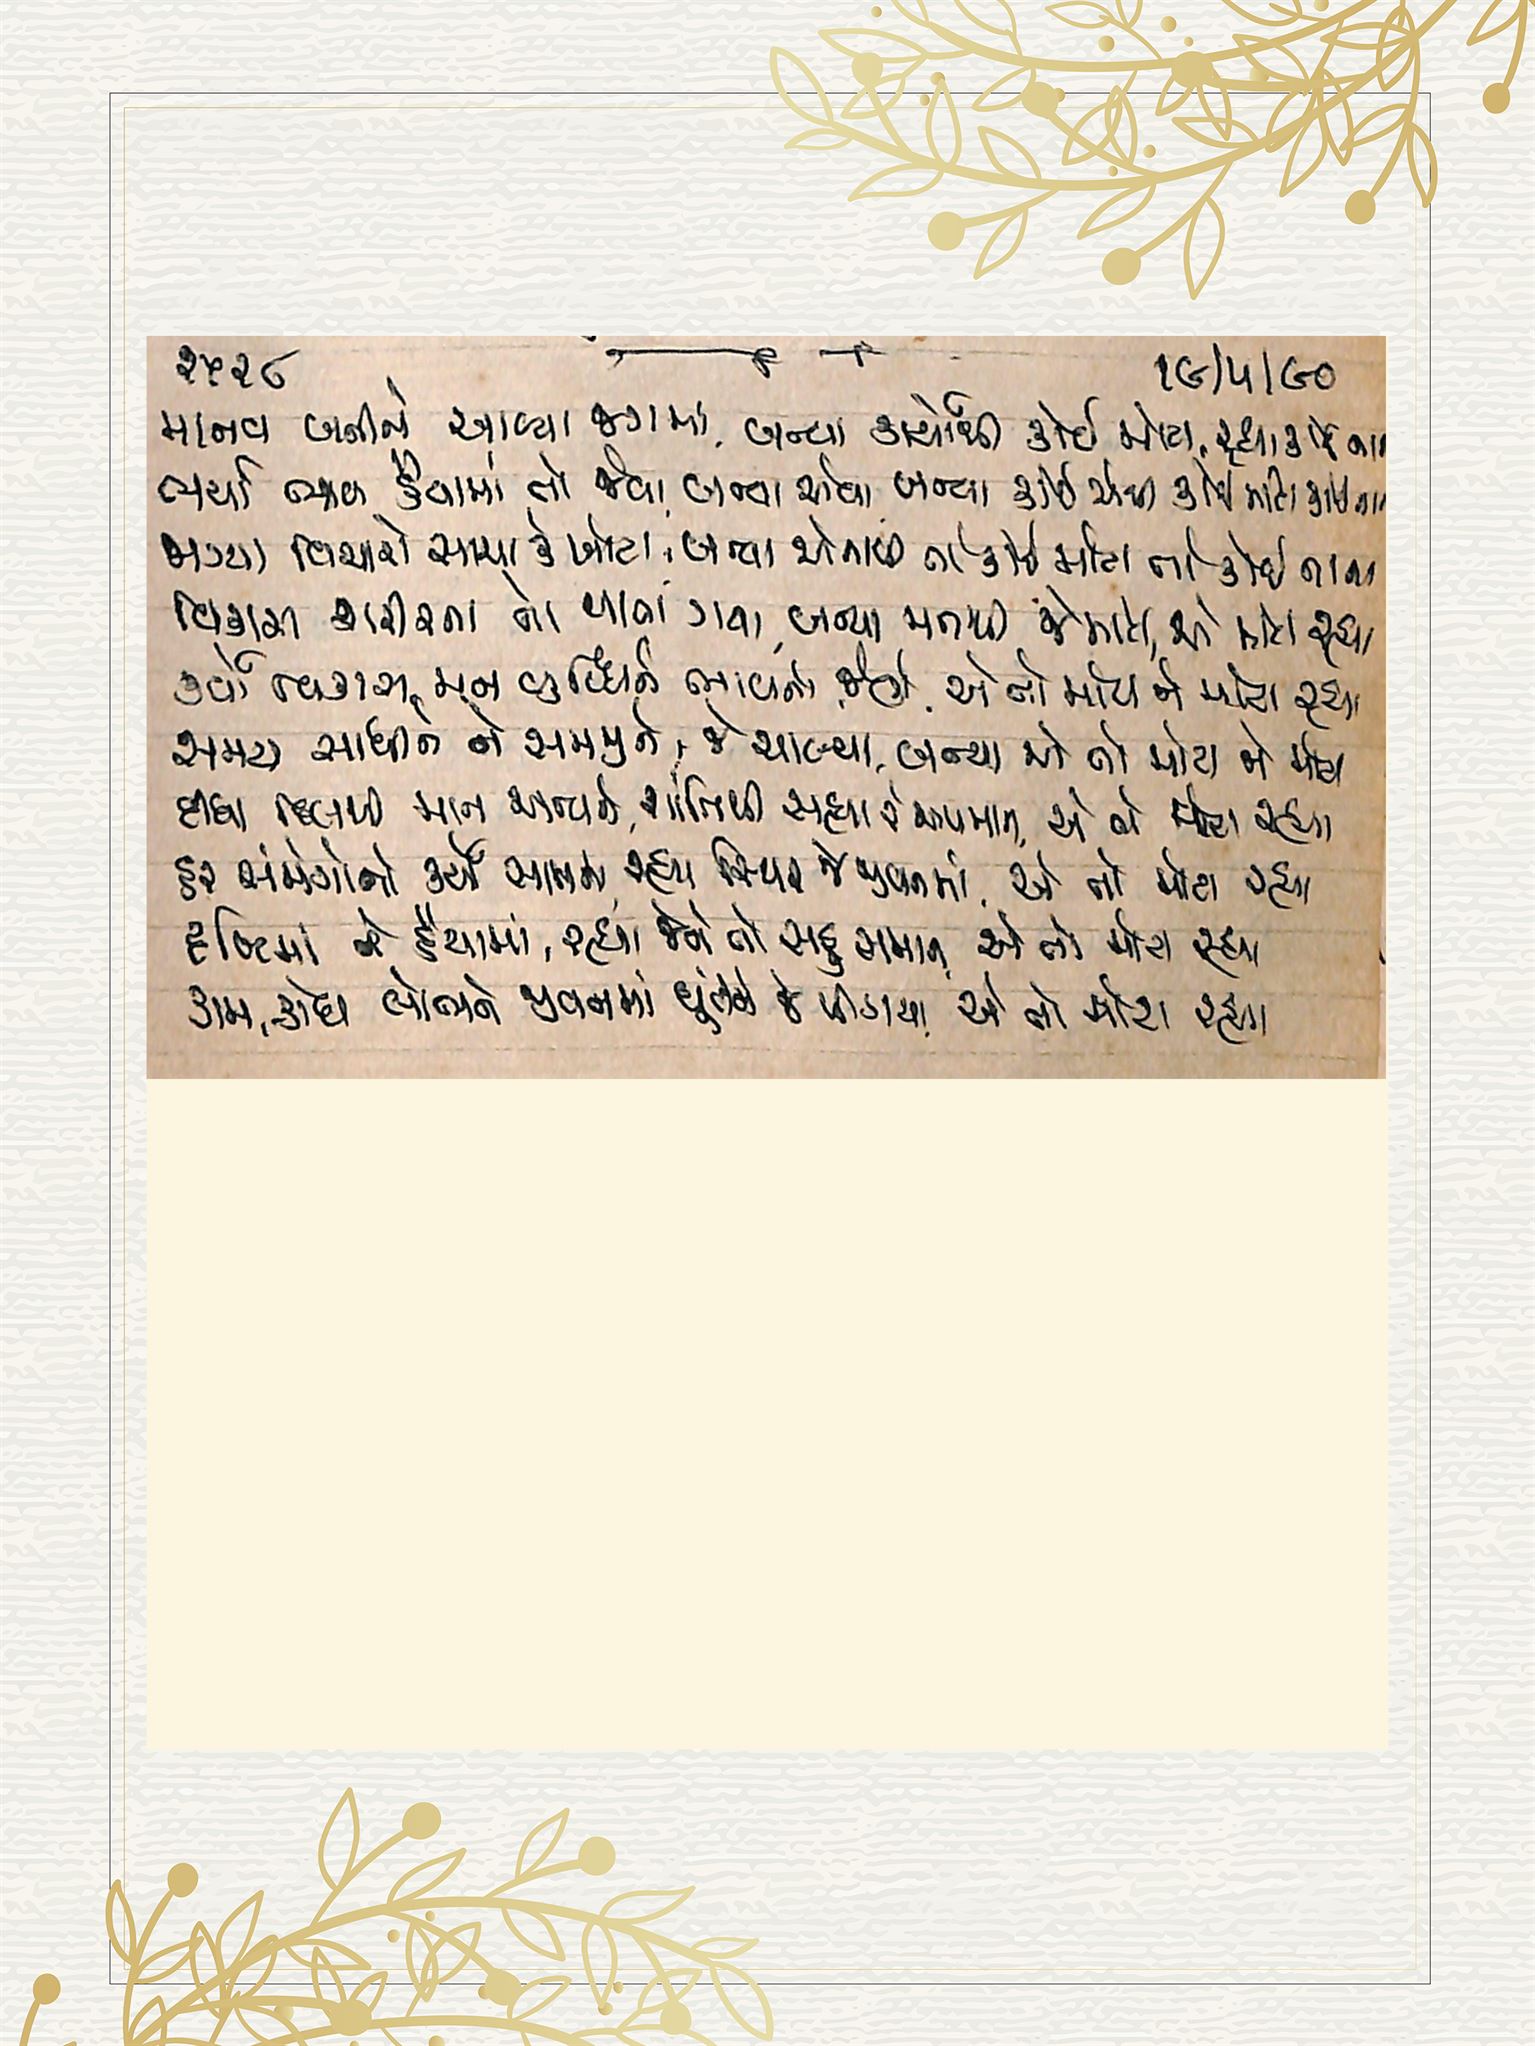 ૨૫૨૮ ૧૯/૫/૯૦
માનવ બનીને આવ્યા જગમાં, બન્યા કાર્યોથી કોઈ મોટા, રહ્યા કોઈ
ભર્યા ભાવ હૈયામાં તો જેવા, બન્યા એવા, બન્યા કોઈ એથી કોઈ મોટા કોઈ
જાગ્યા વિચારો સાચા કે ખોટા, બન્યા એનાથી તો કોઈ મોટા તો કોઈ નાના
વિકાસ શરીરના તો થાતા ગયા, બન્યા મનથી જે મોટા, એ મોટા રહ્યા
કર્યો વિકાસ, મન બુદ્ધિને ભાવનો જેણે, એ તો મોટા ને મોટા રહ્યા
સમય સાધીને ને સમજીને, જે ચાલ્યા, બન્યા એ તો મોટા ને મોટા
દીધા દિલથી માન અન્યને, શાંતિથી સહ્યા રે અપમાન, એ તો મોટા રહ્યા
હર સંજોગોનો કર્યો સામનો, રહ્યા સ્થિર જે જીવનમાં, એ તો મોટા રહ્યા
દૃષ્ટિમાં ને હૈયામાં, રહ્યા જેને તો સહુ સમાન, એ તો મોટા રહ્યા
કામ, ક્રોધ લોભને જીવનમાં જે પી ગયા, એ તો મોટા રહ્યા